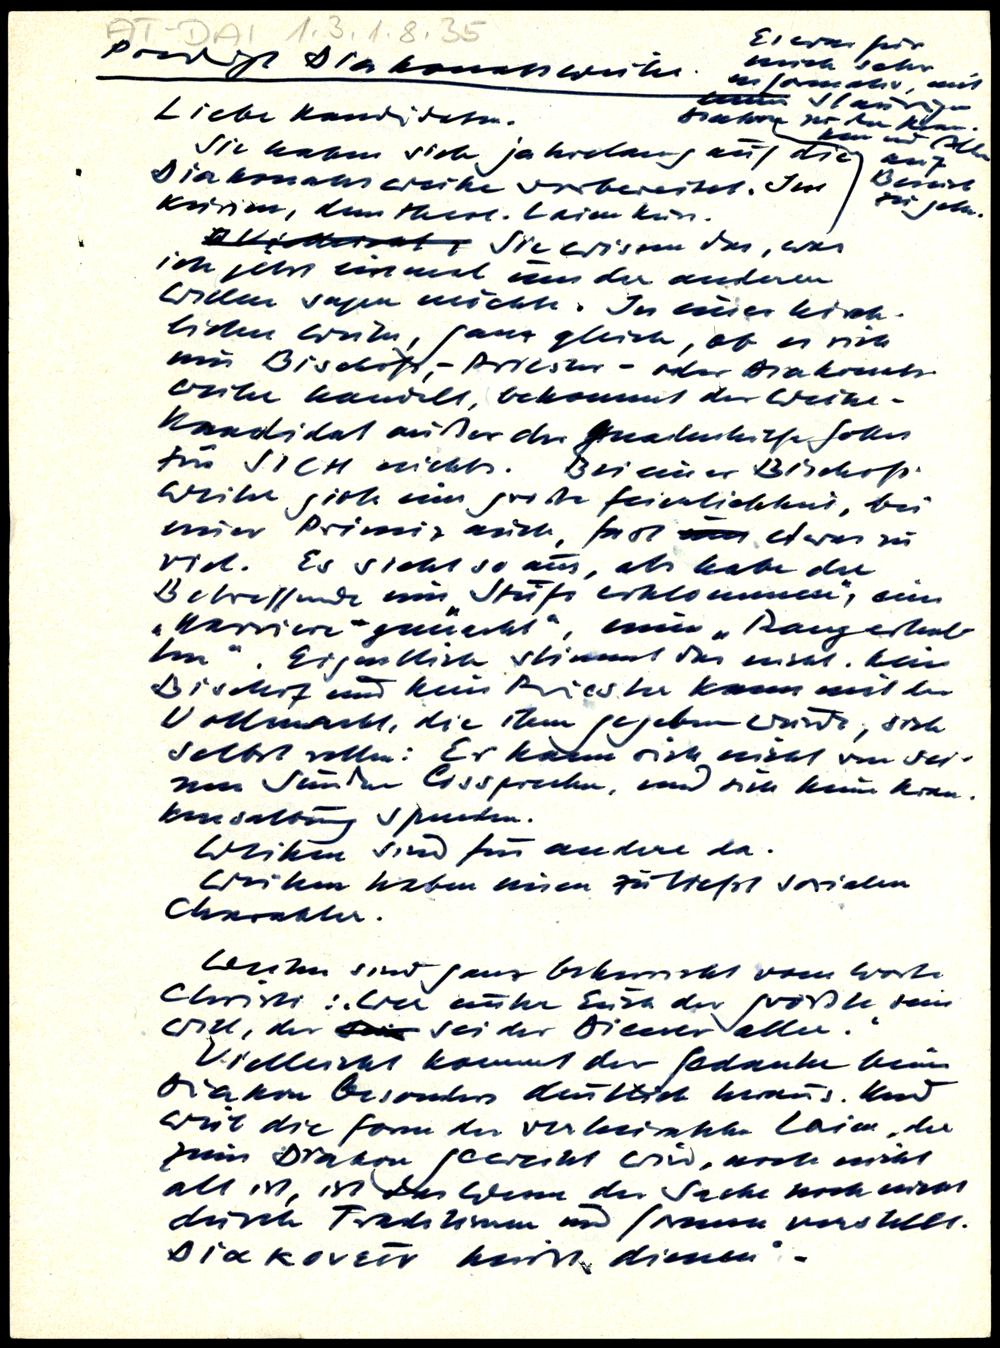 AT-DAI 1.3.1.8.35
Predigt Diakonatsweihe.
Es war für
mich sehr
informativ, mit
einem Ständigen
Diakon zu den Kran-
ken und Alten
auf
Besuch
zu gehn.
Liebe Kandidaten.
Sie haben sich jahrelang auf die
Diakonatsweihe vorbereitet. Im
Kursen, dem theol. Laienkurs.
Vielleicht, Sie wissen das, was
ich jetzt einmal um der anderen
willen sagen möchte. In einer kirch-
lichen Weihe, ganz gleich, ob es sich
um Bischofs,- Priester- oder Diakonats-
weihe handelt, bekommt der Weihe-
kandidat außer der Gnadenhilfe Gottes
für SICH nichts. Bei einer Bischofs-
weihe gibt's eine große Feierlichkeit, bei
einer Primiz auch, fast etwas zu
viel. Es sieht so aus, als habe der
Betreffende eine "Stufe erklommen", eine
"Karriere gemacht", eine "Rangerhöh-
ung". Eigentlich stimmt das nicht. Kein
Bischof und kein Priester kann mit der
Vollmacht, die ihm gegeben wurde, sich
selbst retten: Er kann sich nicht von sei-
nen Sünden lossprechen, und sich keine Kran-
kensalbung spenden.
Weihen sind für andere da.
Weihen haben einen zutiefst sozialen
Charakter.
Weihen sind ganz beherrscht vom Worte
Christi: "Wer unter Euch der größte sein
will, der sei der Diener aller."
Vielleicht kommt der Gedanke beim
Diakon besonders deutlich heraus. Und
weil die Form des verheirateten Laien, der
zum Diakon geweiht wird, noch nicht
alt ist, ist das Wesen der Sache noch nicht
durch Traditionen und Formen verstellt.
Diakovein heißt "dienen" -